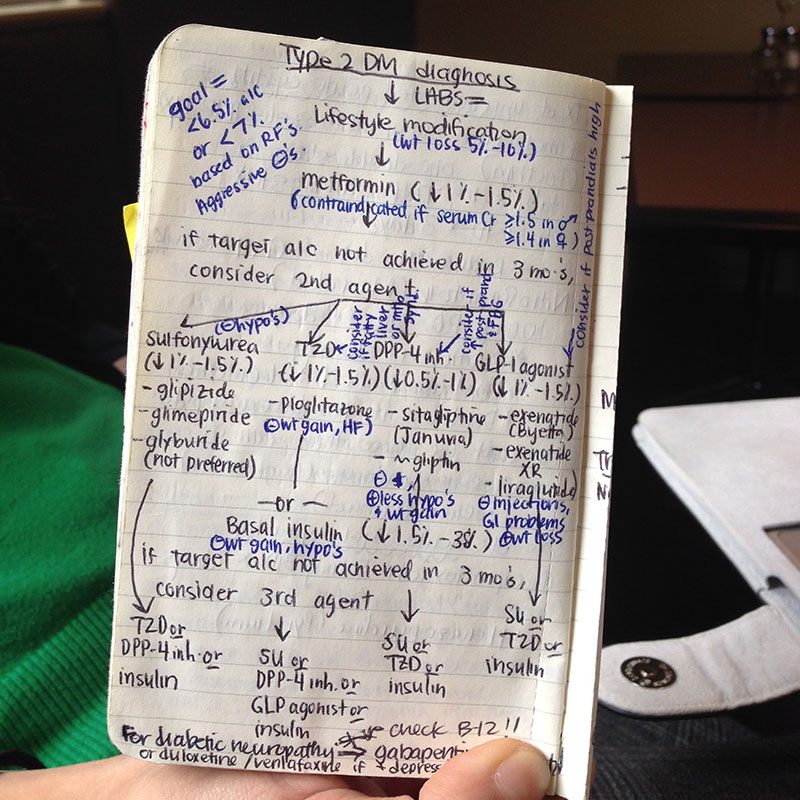 Type 2 DM diagnosis
↓ LABS=
goal =
<6.5% a1c
or <7%
based on RF's.
Aggressive ⊖'s.
Lifestyle modification
(wt loss 5%-10%)
↓
metformin (↓1%-1.5%)
(contraindicated if serum Cr ≥1.5 in ♂
≥1.4 in ♀)
if target a1c not achieved in 3 mo's,
consider 2nd agent.
consider if postprandials high
(⊖hypo's)
Sulfonylurea
(↓1%-1.5%)
- glipizide
- glimepiride
- glyburide
(not preferred)
consider
if fatty
liver
TZD
(↓1%-1.5%)
- Pioglitazone
⊖wt gain, HF)
consider if
↑ post prand
& FBG
DPP-4 inh.
(↓0.5%-1%)
- sitagliptine
(Januvia)
- ~gliptin
⊖ $,
⊕less hypo's
& wt gain
GLP-1 agonist
(↓1%-1.5%)
- exenatide
(Byetta)
- exenatide
XR
- liraglutide)
⊖injections,
GI problems
⊕wt loss
—or—
Basal insulin (↓1.5%-3%)
⊖wt gain, hypo's
if target a1c not achieved in 3 mo's,
consider 3rd agent
TZD or
DPP-4 inh. or
insulin
SU or
DPP-4 inh. or
GLP agonist or
insulin
SU or
TZD or
insulin
SU or
TZD or
insulin
check B-12!!
For diabetic neuropathy ⇒ gabapenti
or duloxetine/venlafaxine if depress